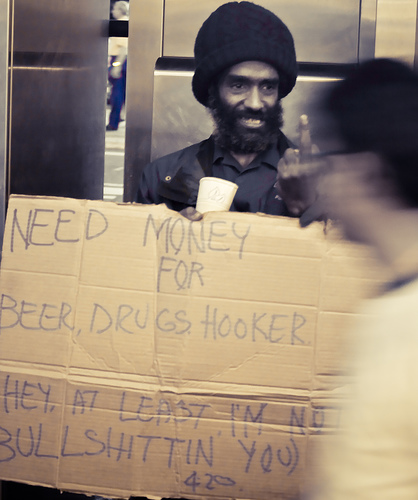 NEED MONEY
FOR
BEER, DRUGS. HOOKER.
HEY, AT LEAST, I'M NO
BULLSHITTIN YOU)
420